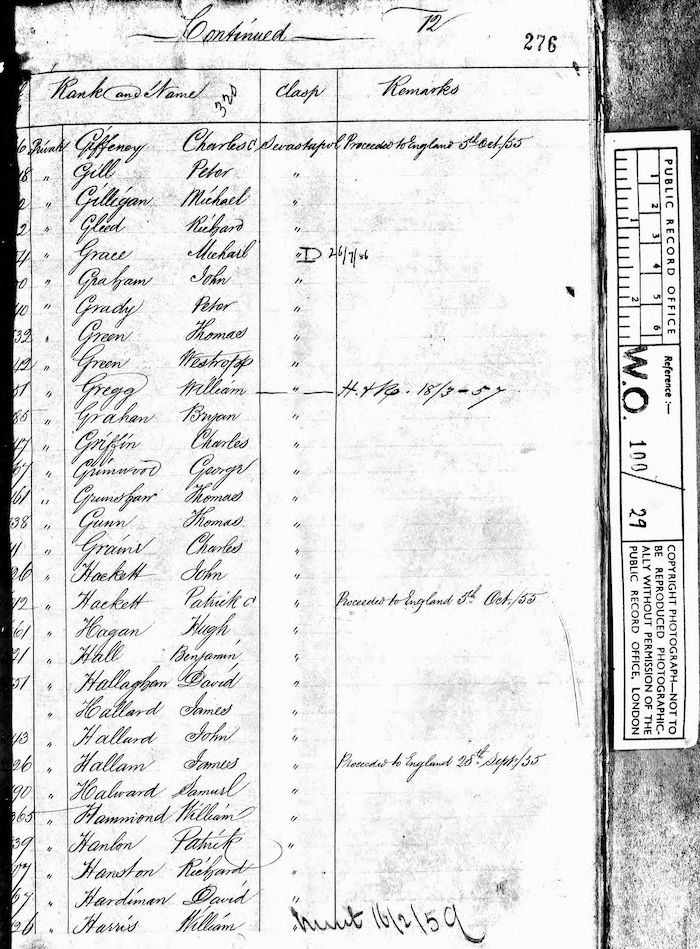 Continued 12
276
Rank and Name 320 Clasp Remarks
6 Private Giffeney Charles Sevastapol Proceeded to England 5th Oct/55
8 " Gill Peter "
2 " Gilligan Michael "
2 " Gleed Richard "
4 " Grace Michail " D 26/7/86
0 " Graham John "
40 " Grady Peter "
532 " Green Thomas "
42 " Green Westropp "
51 " Gregg William " H & Ro. 18/3-57
85 " Grahan Bryan "
47 " Griffin Charles "
67 " Grimwood George "
461 " Grunshaw Thomas "
538 " Gunn Thomas "
1 " Grains Charles "
26 " Hackett John "
512 " Hackett Patrick Proceeded to England 5th Oct/55
661 " Hagan Hugh "
91 " Hall Benjamin "
51 " Hallaghan David "
" Hallard James "
43 " Hallard John "
926 " Hallam James " Proceeded to England 28th Sept/55
90 " Halward Samuel "
365 " Hammond William "
539 " Hanlon Patrick "
07 " Hanston Richard "
67 " Hardiman David "
26 " Harris William 16/2/59
PUBLIC RECORD OFFICE
1 2 3 4 5 6
1 2
Reference :-
W.O. 100/29
COPYRIGHT PHOTOGRAPH—NOT TO
BE REPRODUCED PHOTOGRAPHIC-
ALLY WITHOUT PERMISSION OF THE
PUBLIC RECORD OFFICE, LONDON